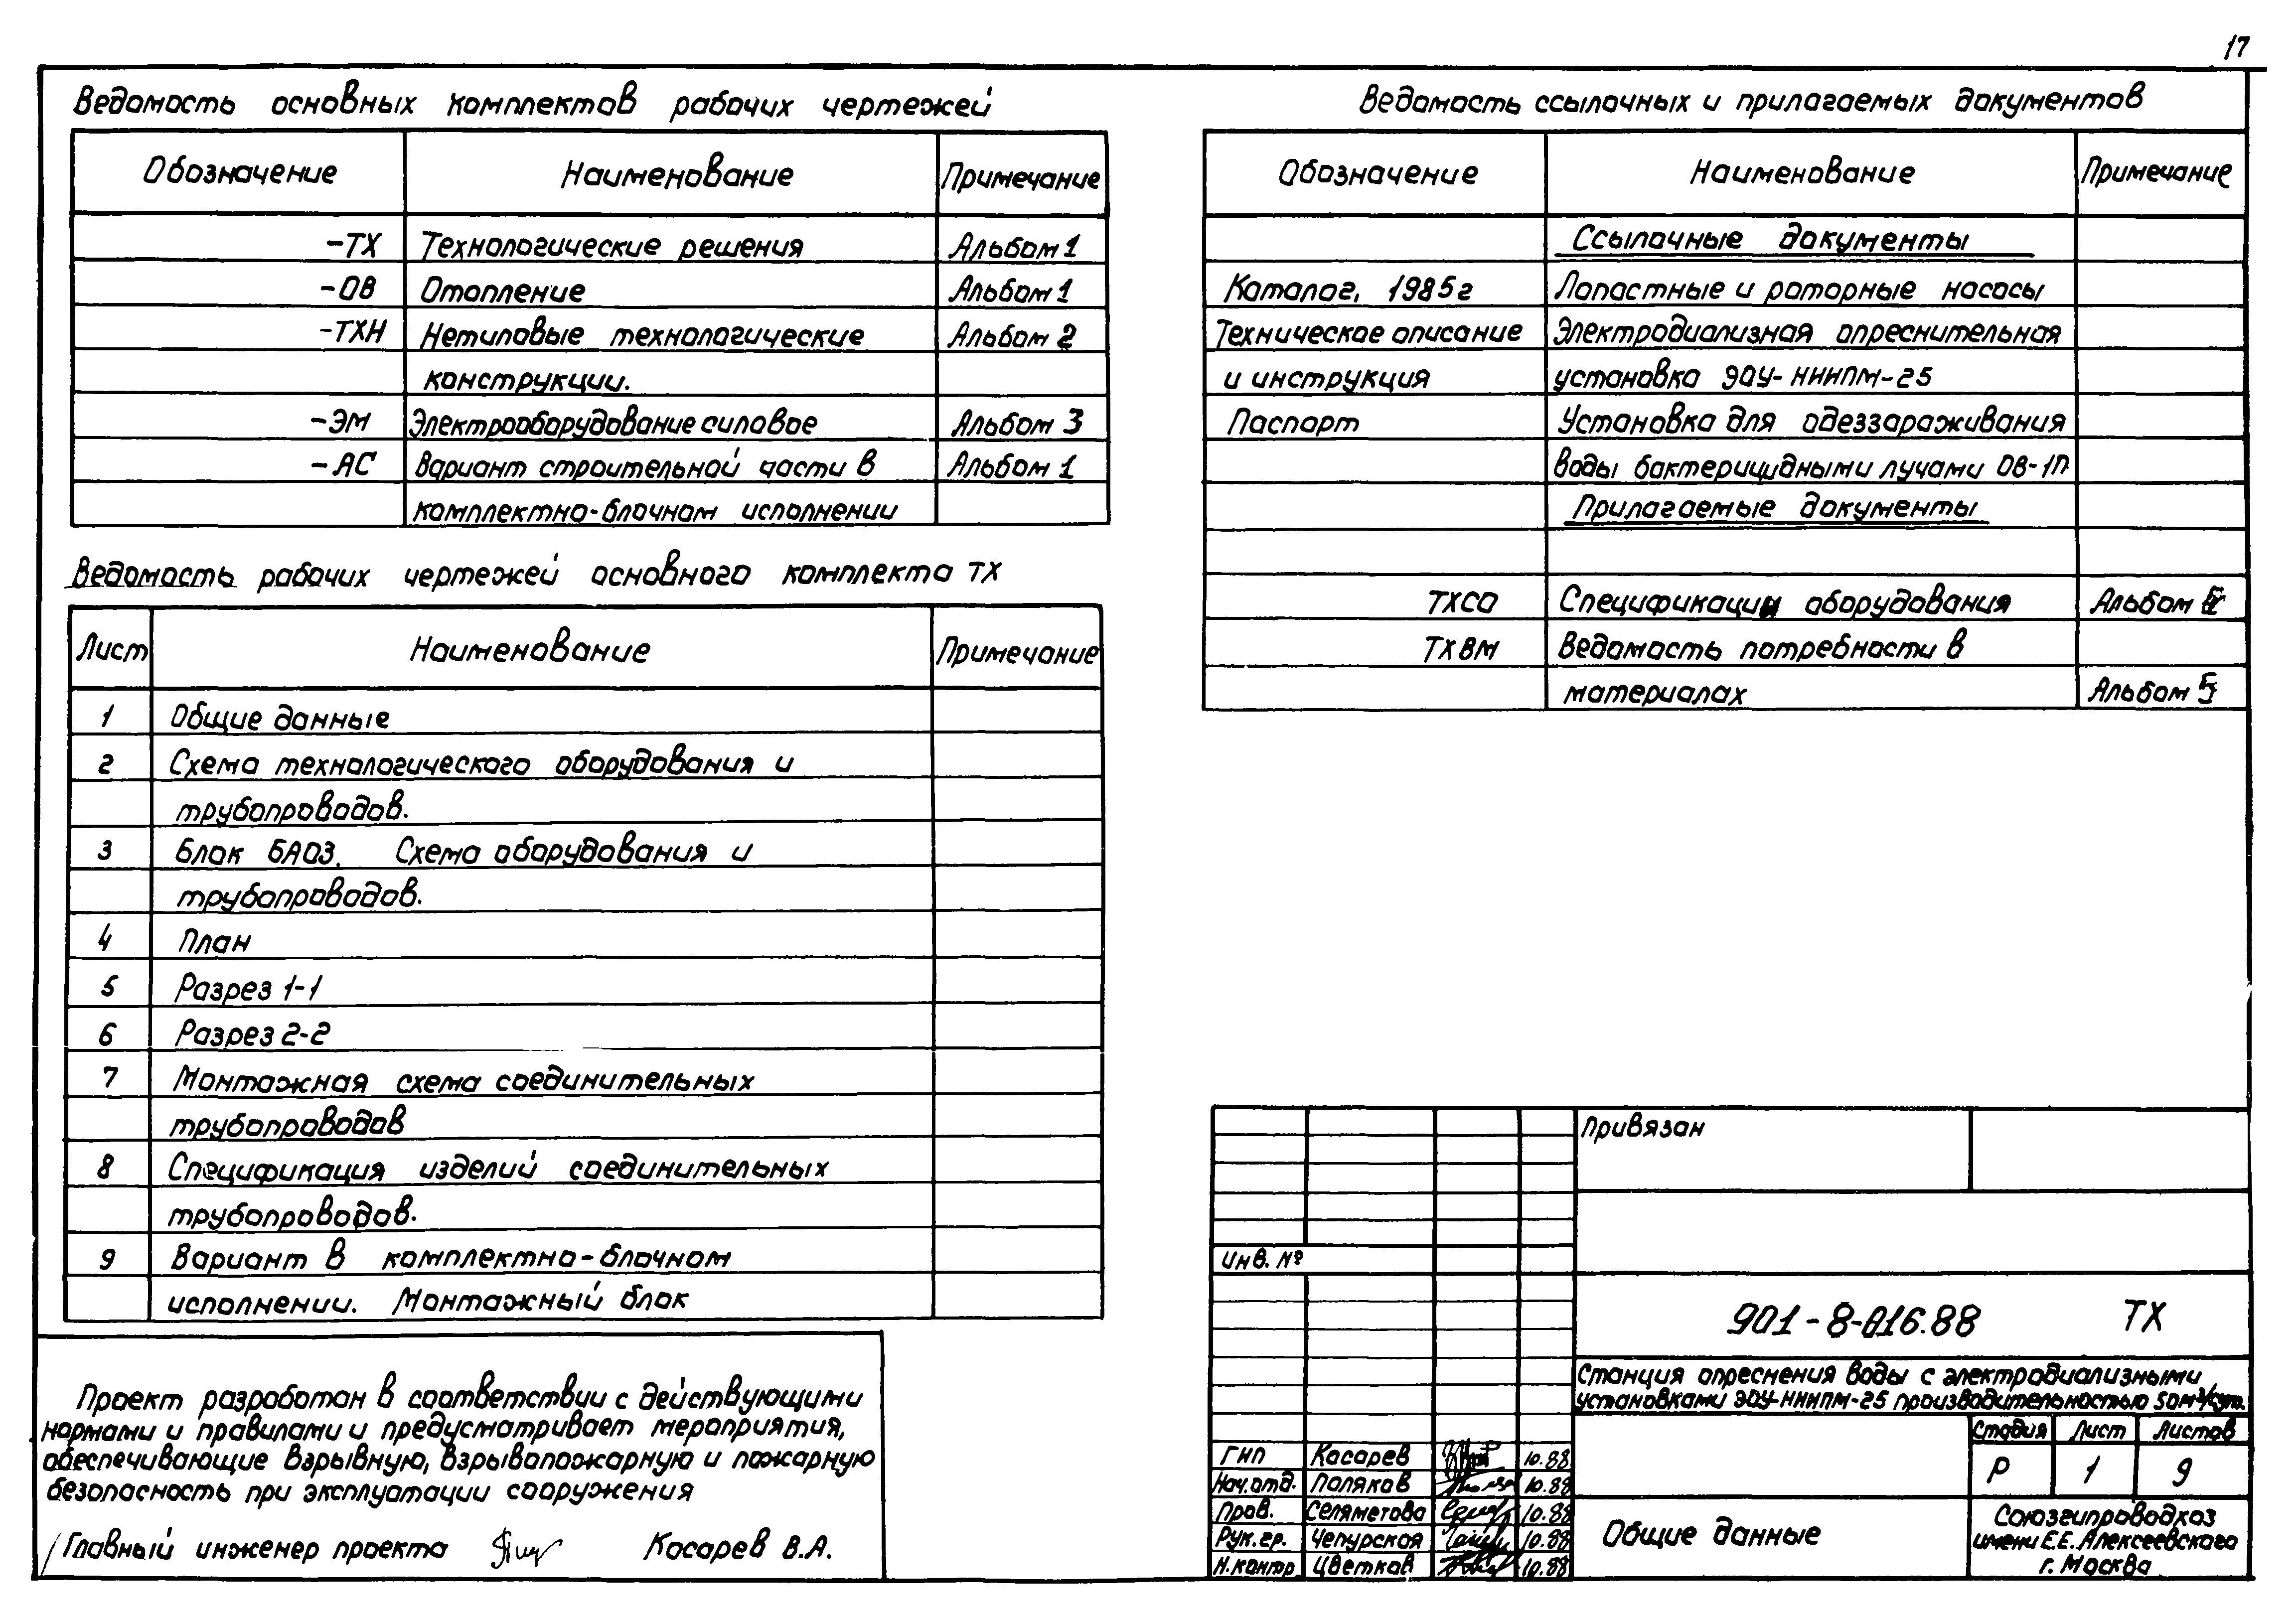 17
Ведомость основных комплектов рабочих чертежей
Обозначение Наименование Примечание
-ТХ Технологические решения Альбом 1
-ОВ Отопление Альбом 1
-ТХН Нетиповые технологические Альбом 2
конструкции.
-ЭМ Электрооборудование силовое Альбом 3
-АС Вариант строительной части в Альбом 1
комплектно-блочном исполнении
Ведомость рабочих чертежей основного комплекта ТХ
Лист Наименование Примечание
1 Общие данные
2 Схема технологического оборудования и
трубопроводов.
3 Блок БАОЗ. Схема оборудования и
трубопроводов.
4 План
5 Разрез 1-1
6 Разрез 2-2
7 Монтажная схема соединительных
трубопроводов
8 Спецификация изделий соединительных
трубопроводов.
9 Вариант в комплектно-блочном
исполнении. Монтажный блок
Проект разработан в соответствии с действующими
нормами и правилами и предусматривает мероприятия,
обеспечивающие взрывную, взрывопожарную и пожарную
безопасность при эксплуатации сооружения
Главный инженер проекта Косарев В.А.
Ведомость ссылочных и прилагаемых документов
Обозначение Наименование Примечание
Ссылочные документы
Каталог, 1985г Лопастные и роторные насосы
Техническое описание Электродиализная опреснительная
и инструкция установка ЭОУ-НИИПМ-25
Паспорт Установка для одеззараживания
воды бактерицидными лучами ОВ-1П
Прилагаемые документы
ТХСО Спецификации оборудования Альбом
ТХВМ Ведомость потребности в
материалах Альбом 5
Привязан
Инв. №
901-8-016.88 ТХ
Станция опреснения воды с электродиализными
установками ЭОУ-НИИПМ-25 производительностью 50м³/сут.
Стадия Лист Листов
Р 1 9
ГИП Косарев 10.88
Нач.отд. Поляков 10.88
Пров. Селяметова 10.88
Рук.гр. Чепурская 10.88
Н.контр Цветков 10.88
Общие данные
Союзгипроводхоз
имени Е.Е. Алексеевского
г. Москва